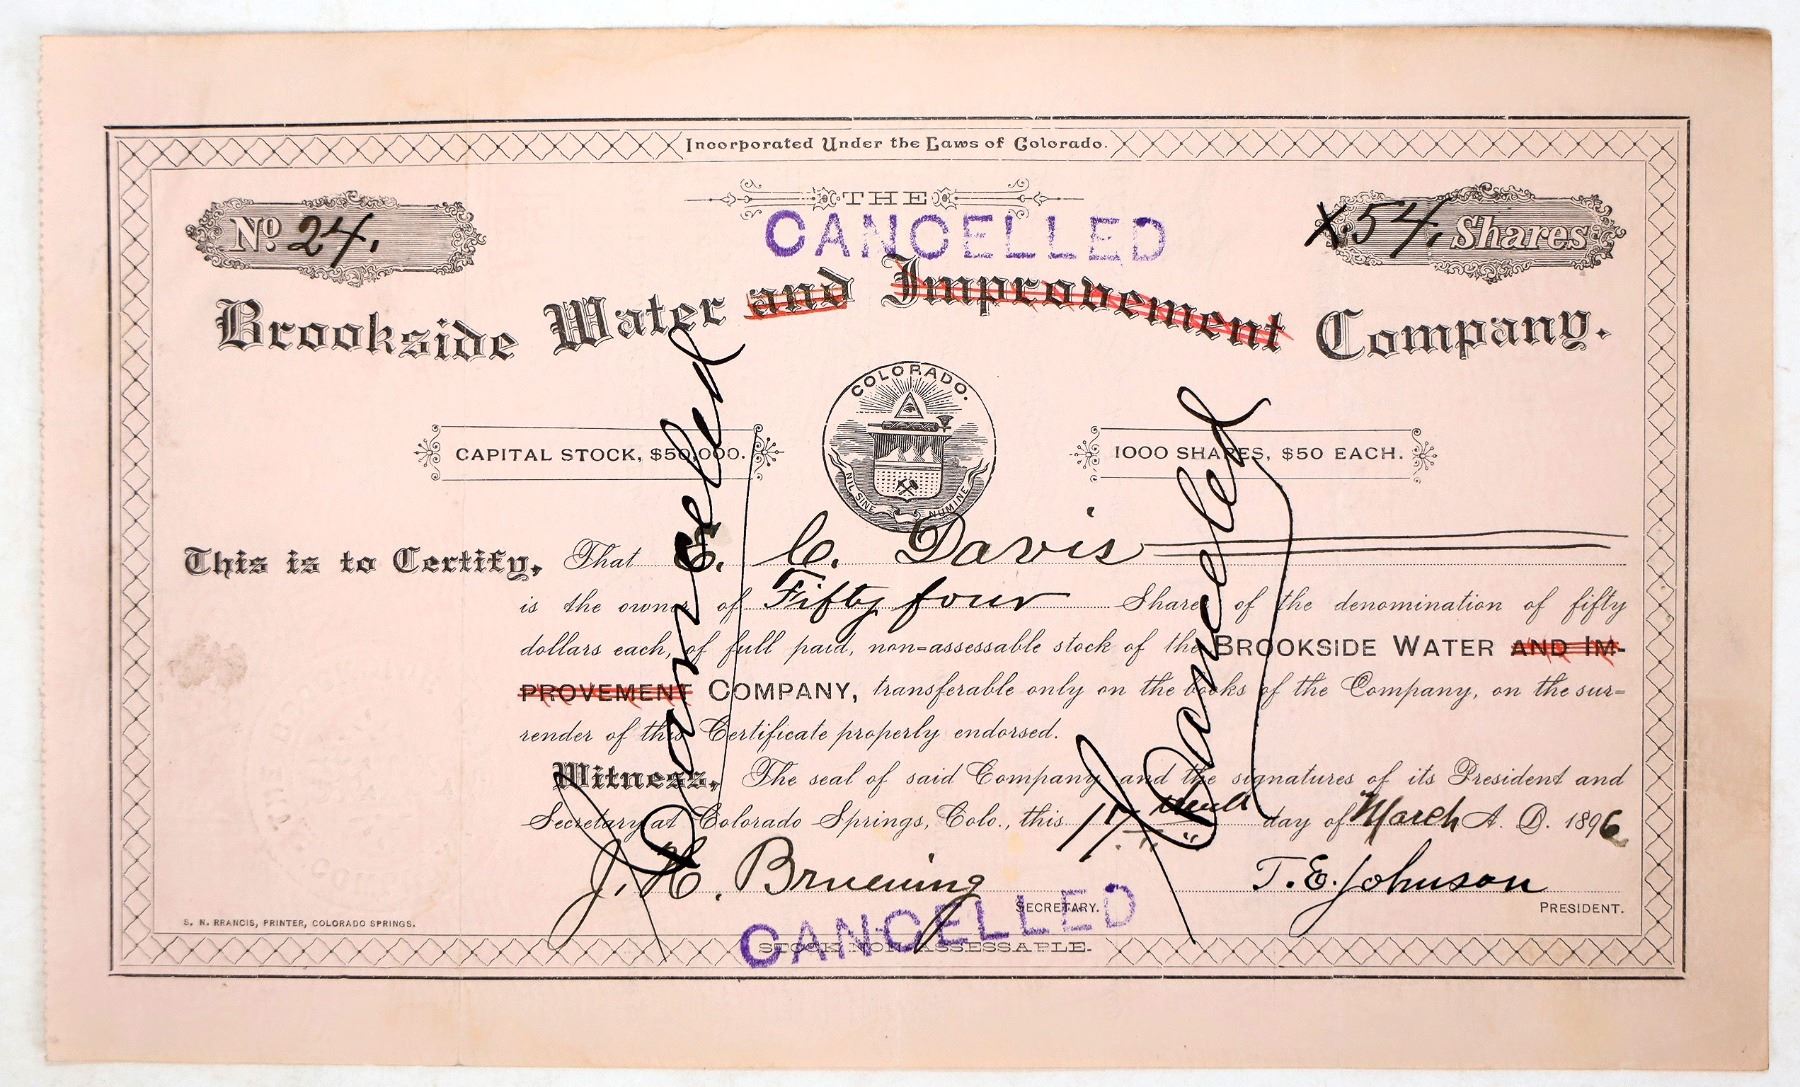 Incorporated Under the Laws of Colorado.
THE
No. 24.
CANCELLED
X 54. Shares
Brookside Water and Improvement Company.
COLORADO.
NIL SINE NUMINE
CAPITAL STOCK, $50,000.
1000 SHARES, $50 EACH.
Cancelled
Cancelled
This is to Certify, That E. C. Davis
is the owner of Fifty four Shares of the denomination of fifty
dollars each, of full paid, non-assessable stock of the BROOKSIDE WATER AND IM-
PROVEMENT COMPANY, transferable only on the books of the Company, on the sur-
render of this Certificate properly endorsed.
Witness, The seal of said Company and the signatures of its President and
Secretary at Colorado Springs, Colo., this 17 day of March A. D. 1896
J. H. Bruening SECRETARY.
T. E. Johnson PRESIDENT.
S. N. FRANCIS, PRINTER, COLORADO SPRINGS.
CANCELLED
STOCK NON-ASSESSABLE.